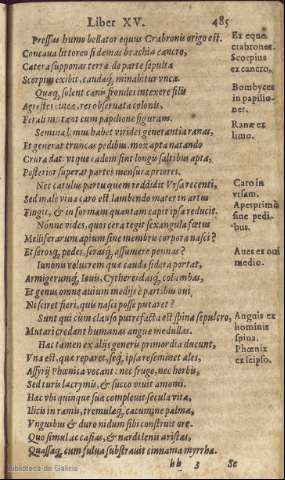 Liber XV. 485
Pressus humo bellator equus Crabronis origo est.
Concaua littoreo si demas brachia cancro,
Cætera supponas terræ de parte sepulta
Scorpius exibit, caudaq́; minabitur vnca.
Quæq́; solent canis frondes intexere filis
Agrestes tineæ, res obseruata colonis,
Ferali mutant cum papilione figuram.
Semina limus habet virides generantia ranas,
Et generat truncas pedibus. mox apta natando
Crura dat: vt que eadem sint longis saltibus apta,
Posterior superat partes mensura priores.
Nec catulus partu quem reddidit Vrsa recenti,
Sed male viua caro est. lambendo mater in artus
Fingit, & in formam quantam capit ipsa reducit.
Nonne vides, quos cera tegit sexangula fœtus
Melliferarum apium sine membris corpora nasci?
Et serosq́; pedes, serasq́; assumere pennas?
Iunonis volucrem quæ cauda sidera portat,
Armigerumq́; Iouis, Cythereiadasq́; columbas,
Et genus omne auium medijs è partibus oui,
Ni sciret fieri, quis nasci posse putaret?
Sunt qui cum clauso putrefacta est spina sepulcro,
Mutari credant humanas angue medullas.
Hæc tamen ex alijs generis primordia ducunt,
Vna est, quæ reparet, seq́; ipsa reseminet ales,
Assyrij Phœnica vocant: nec fruge, nec herbis,
Sed turis lacrymis, & succo viuit amomi.
Hæc vbi quinque suæ compleuit secula vitæ,
Ilicis in ramis, tremulæq́; cacumine palmæ,
Vnguibus & duro nidum sibi construit ore.
Quo simul ac casias, & nardi lenis aristas,
Quassaq́; cum fulua substrauit cinnama myrrha.
hh 3 Se
Ex equo
crabrones.
Scorpius
ex cancro.
Bombyces
in papilio-
nes.
Ranæ ex
limo.
Caro in
vrsam.
Apes primò
sine pedi-
bus.
Aues ex oui
medio.
Anguis ex
hominis
spina.
Phœnix
ex seipso.
Biblioteca de Galicia